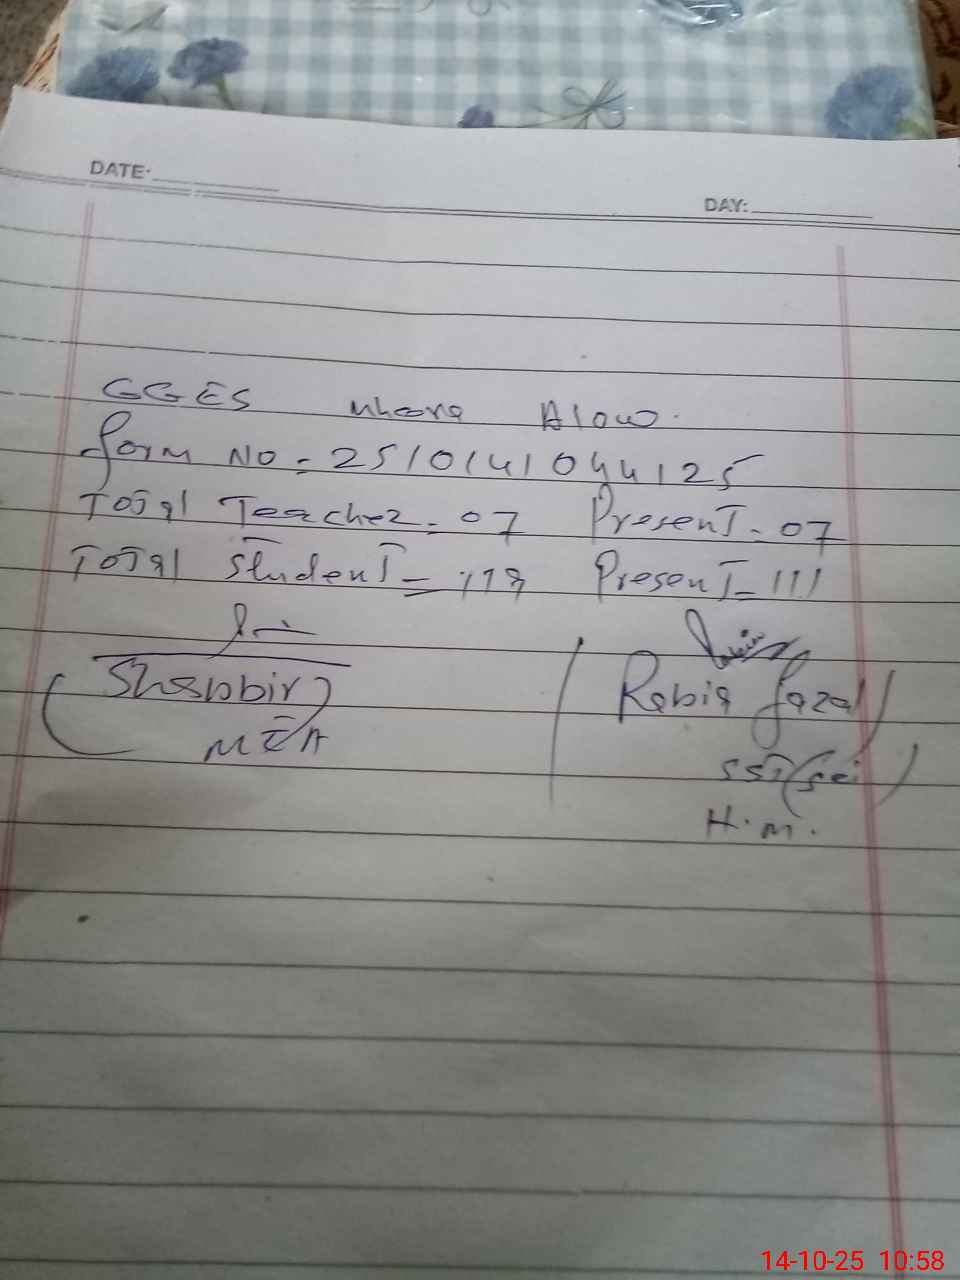 DATE:
DAY:
GGES Alow.
form No = 2510141044125
Total Teacher - 07 Present - 07
Total Student = Present = 111
Shabbir
MEA
Rabia fazal
SST (Sci)
H.M.
14-10-25 10:58